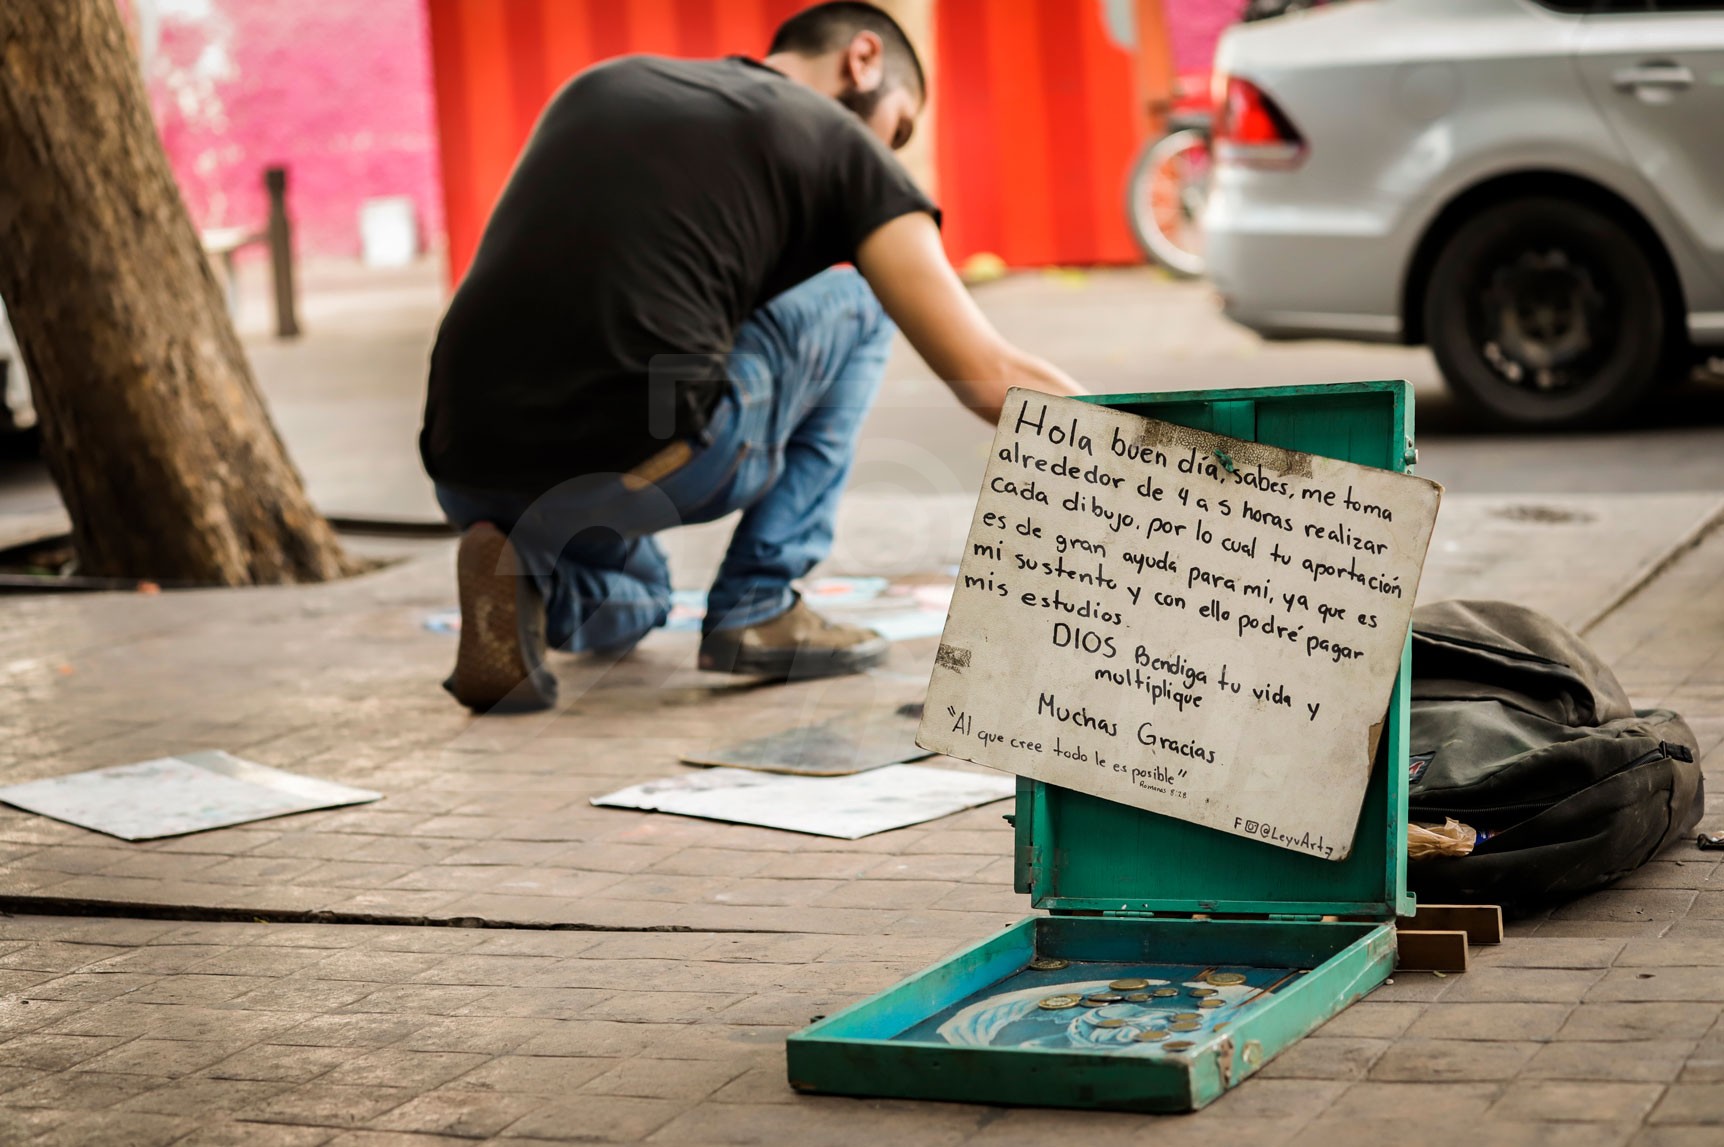 Hola buen día, sabes, me toma
alrededor de 4 a 5 horas realizar
cada dibujo, por lo cual tu aportación
es de gran ayuda para mi, ya que es
mi sustento y con ello podré pagar
mis estudios.
DIOS Bendiga tu vida y
multiplique
Muchas Gracias
"Al que cree todo le es posible"
Romanos 8:28
F @LeyvArtz